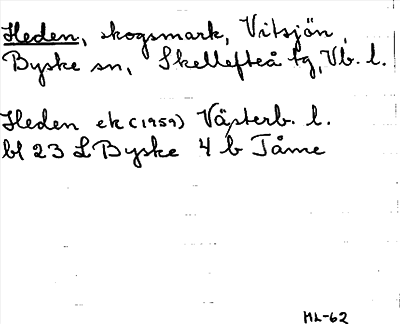 Heden, skogsmark, Vitsjön,
Byske sn, Skellefteå tg, Vb. l.
Heden ek (1959) Västerb. l.
bl 23 L Byske 4 b Tåme
ML-62